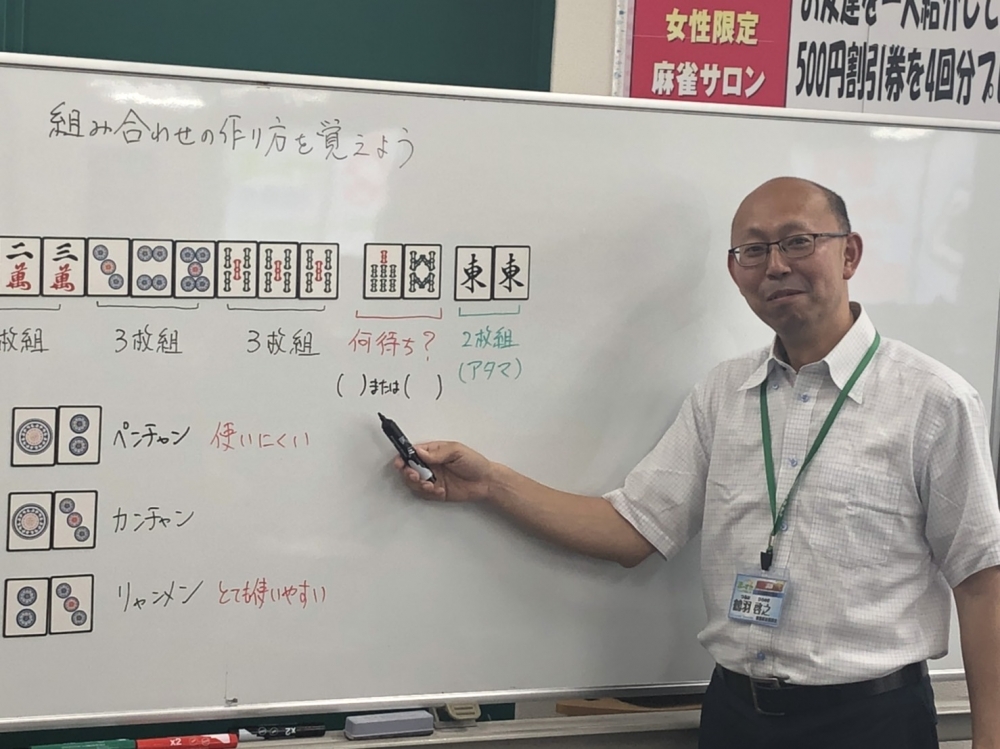 女性限定
麻雀サロン
500円割引券を4回分プ
組み合わせの作り方を覚えよう
二萬 三萬 東 東
枚組 3枚組 3枚組 何待ち? 2枚組
(アタマ)
( )または( )
ペンチャン 使いにくい
カンチャン
リャンメン とても使いやすい
x2 x2